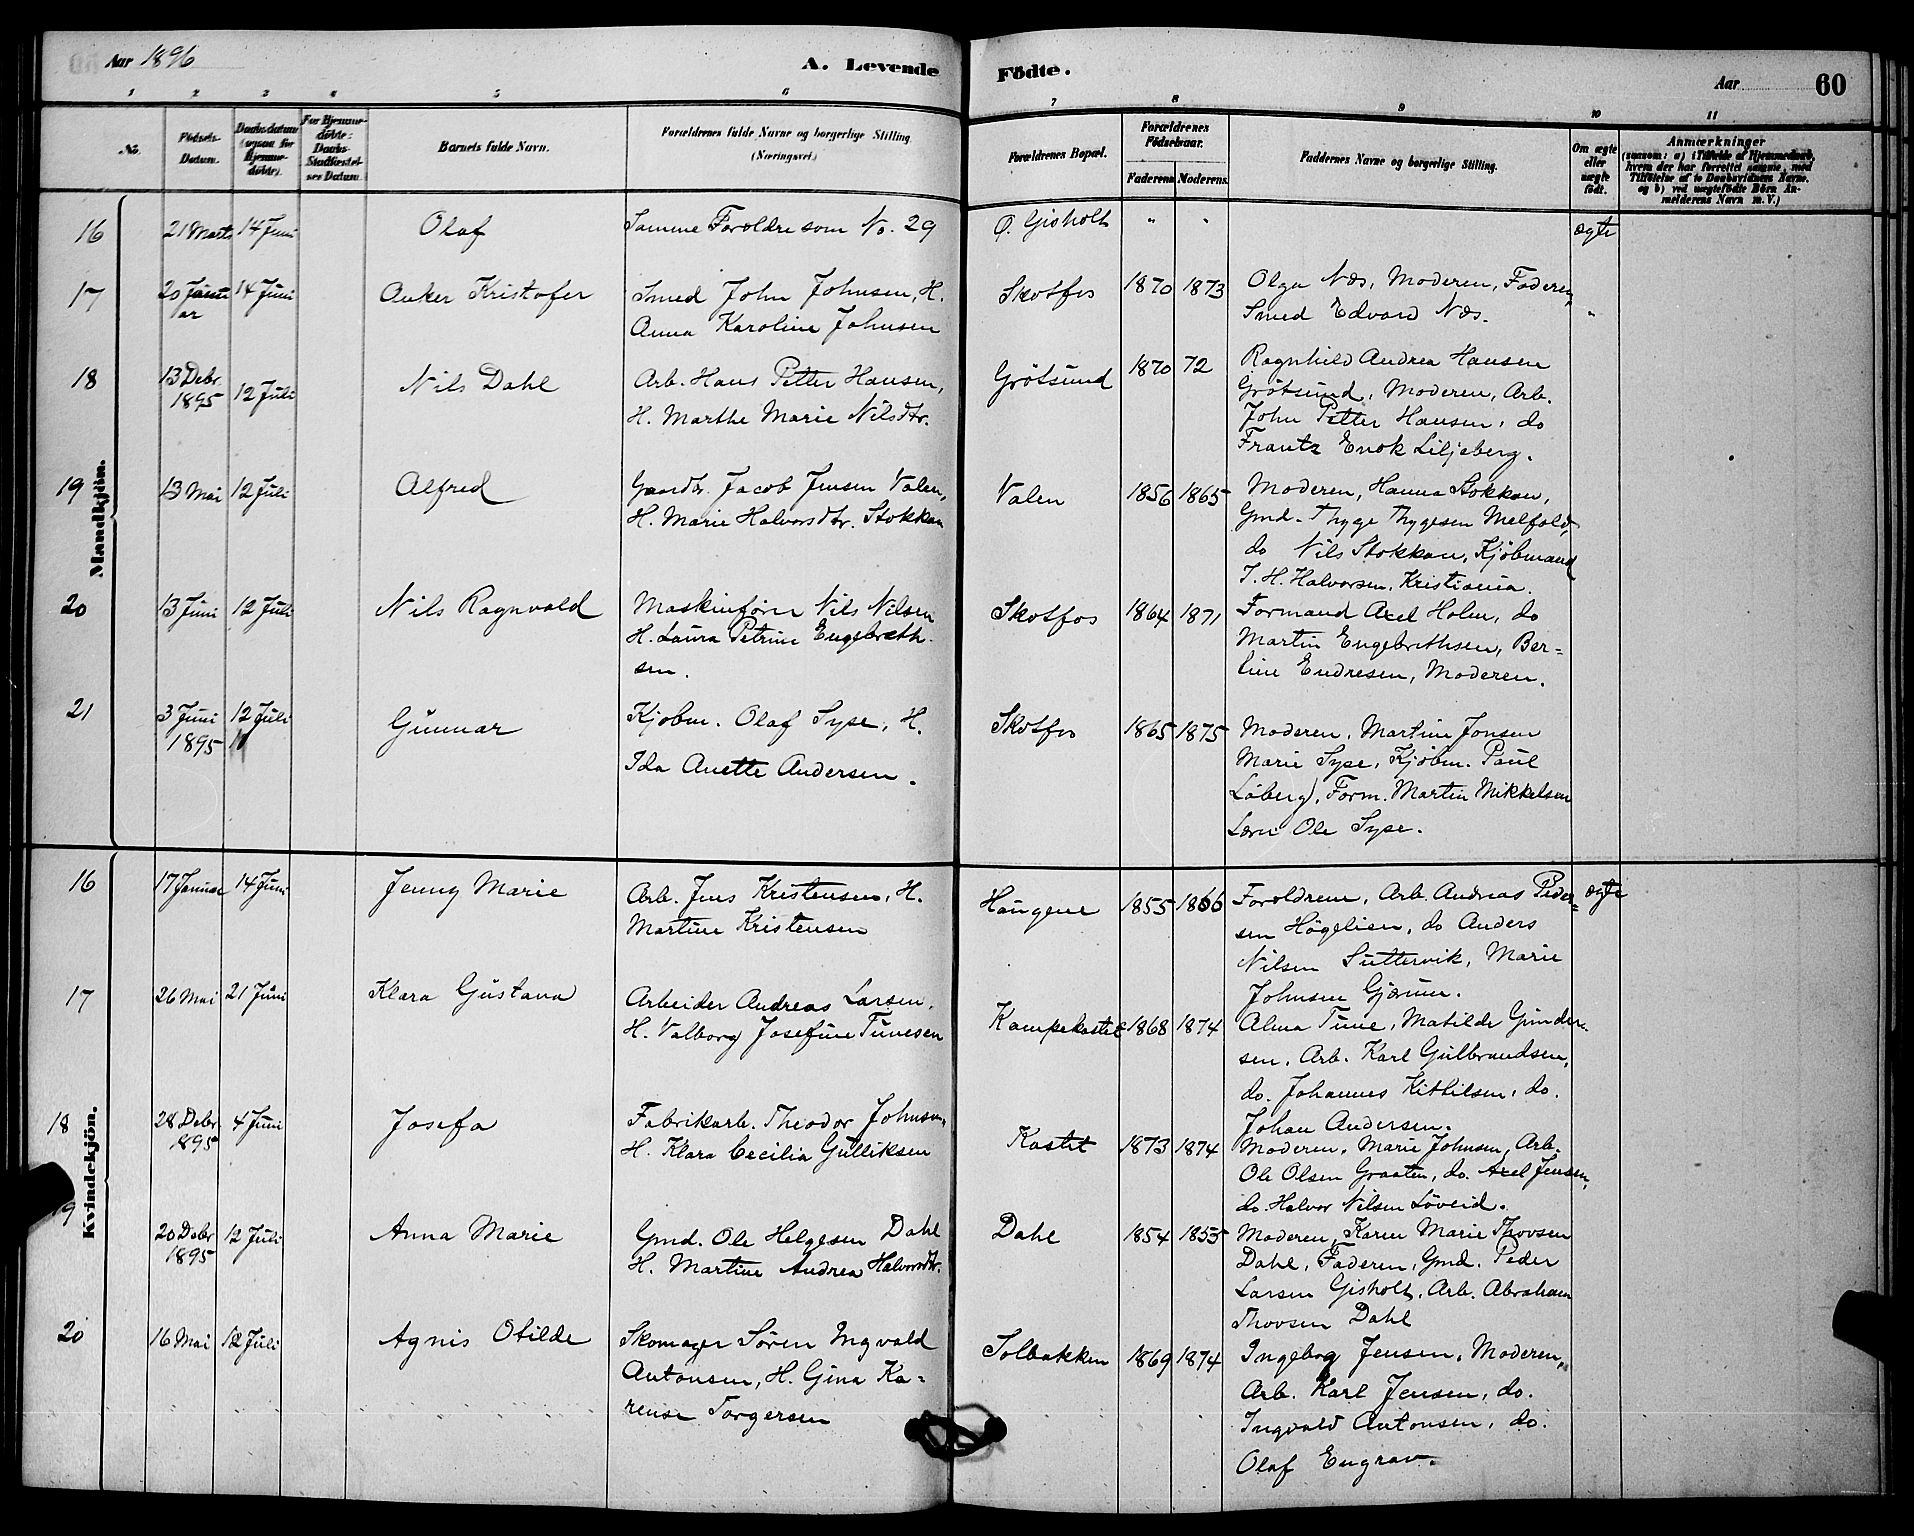 Aar 1896
A. Levende
Födte.
Aar
60
1 2 3 4 5 6 7 8 9 10 11
No.
Födsels-Datum.
Daabsdatum (ogsaa for Hjemmedöbte).
For Hjemmedöbte: Daabs-Stadfæstelses Datum.
Barnets fulde Navn.
Forældrenes fulde Navne og borgerlige Stilling
(Næringsvei.)
Forældrenes Bopæl.
Forældrenes Födselsaar.
Faderens. Moderens.
Faddernes Navne og borgerlige Stilling.
Om ægte eller uægte födt.
Anmærkninger
(saasom: a) i Tilfælde af Hjemmedaab,
hvem der har forrettet samme, med
Tilföielse af to Daabsvidners Navne,
og b) ved uægtefödte Börn An-
melderens Navn m. V.)
Mandkjön.
16 21 Marts 14 Juni Olaf Samme Foroldre som No. 29 Ö. Gisholt " " ægte
17 20 Januar 14 Juni Anker Kristofer Smed John Johnsen, H.
Anna Karoline Johnsen
Skotfos 1870 1873 Olga Næs, Moderen, Faderen,
Smed Edvard Næs. "
18 13 Debr. 1895 12 Juli Nils Dahl Arb. Hans Petter Hansen,
H. Marthe Marie Nilsdtr.
Grötsund 1870 72 Ragnhild Andrea Hansen
Grötsund, Moderen, Arb.
John Petter Hansen, do
Frantz Enok Liljeberg.
19 13 Mai 12 Juli Alfred Gaardbr. Jacob Jensen Valen,
H. Marie Halvorsdtr. Stokkan
Valen 1856 1865 Moderen, Hanna Stokkan,
Gmd. Thyge Thygesen Melfald,
do Nils Stokkan, Kjöbmand
T. H. Halvorsen, Kristiania.
20 13 Juni 12 Juli Nils Ragnvald Maskinförer Nils Nilsen
H. Laura Petrine Engebreth-
sen.
Skotfos 1864 1871 Formand Axel Holm, do
Martin Engebrethsen, Ber-
line Endresen, Moderen.
21 3 Juni 1895 12 Juli Gunnar Kjöbm. Olaf Syse, H.
Ida Anette Andersen.
Skotfos 1865 1875 Moderen, Martine Jonsen
Marie Syse, Kjöbm. Paul
Löberg, Form. Martin Mikkelsen
Lærer Ole Syse.
Kvindekjön.
16 17 Januar 14 Juni Jenny Marie Arb. Jens Kristensen, H.
Martine Kristensen
Haugene 1855 1866 Foroldrene, Arb. Andreas Peder-
sen Högelien, do Anders
Nilsen Suttervik, Marie
Johnsen Gjærum. ægte
17 26 Mai 21 Juni Klara Gustava Arbeider Andreas Larsen,
H. Valborg Josefine Tunesen
Kampekastet 1868 1874 Alma Tune, Matilde Gunder-
sen, Arb. Karl Gulbrandsen,
do. Johannes Kittilsen, do.
Johan Andersen.
18 28 Debr. 1895 4 Juni Josefa Fabrikarb. Theodor Johnsen,
H. Klara Cecilia Gulliksen
Kastet 1873 1874 Moderen, Marie Johnsen, Arb.
Ole Olsen Graaten, do. Axel Jensen,
do. Halvor Nilsen Löveid.
9 20 Debr 1895 12 Juli Anna Marie Gmd. Ole Helgesen Dahl
H. Martine Andrea Halvorsdtr.
Dahl 1854 1855 Moderen, Karen Marie Thovsen
Dahl, Faderen, Gmd. Peder
Larsen Gisholt, Arb. Abraham
Thovsen Dahl
20 16 Mai 12 Juli Agnis Otilde Skomager Sören Ingvald
Antonsen, H. Gina Ka-
rense Torgersen
Solbakken 1869 1874 Ingeborg Jensen, Moderen,
Arb. Karl Jensen, do.
Ingvald Antonsen, do.
Olaf Engrav.